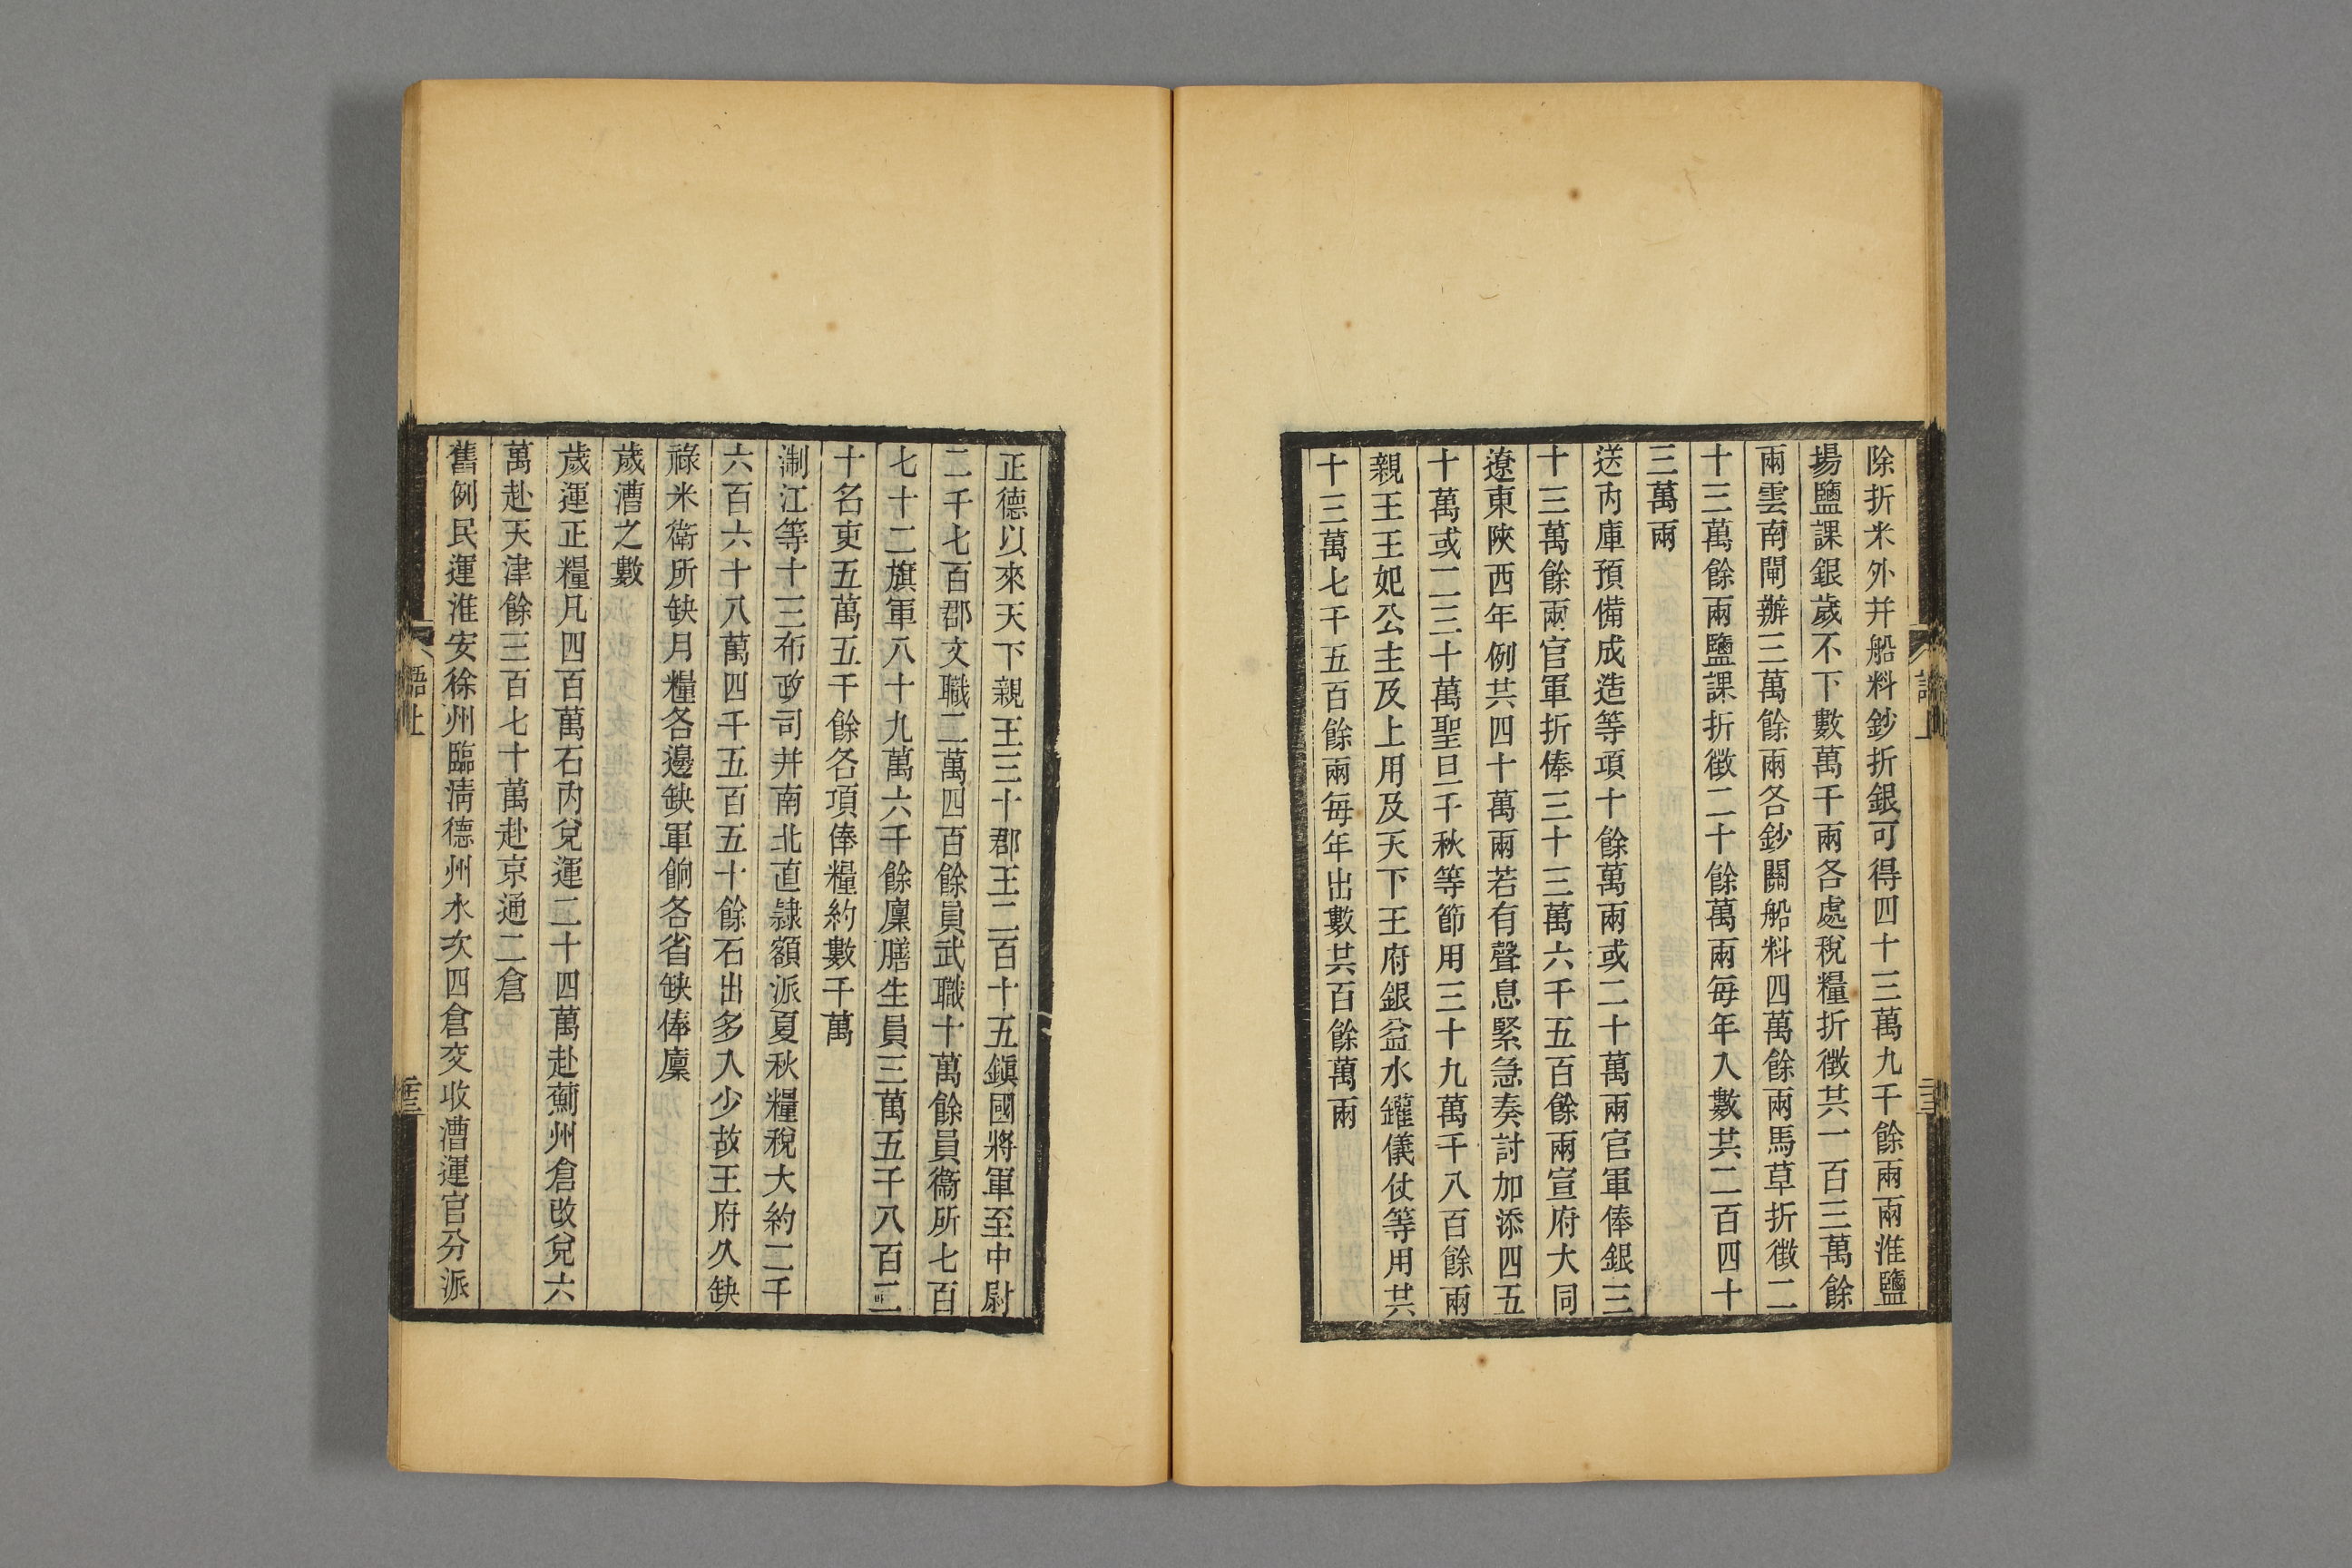 除折米外并船料鈔折銀可得四十三萬九千餘兩兩淮鹽
揚鹽課銀歲不下數萬千兩各處稅糧折徵共一百三萬餘
兩雲南閘辦三萬餘兩各鈔關船料四萬餘兩馬草折徵二
十三萬餘兩鹽課折徵二十餘萬兩每年入數共二百四十
三萬兩
送內庫預備成造等項十餘萬兩或二十萬兩官軍俸銀三
十三萬餘兩官軍折俸三十三萬六千五百餘兩宣府大同
遼東陝西年例共四十萬兩若有聲息緊急奏討加添四五
十萬或二三十萬聖旦千秋等節用三十九萬千八百餘兩
親王王妃公主及上用及天下王府銀盆水罐儀仗等用共
十三萬七千五百餘兩每年出數共百餘萬兩
正德以來天下親王三十郡王二百十五鎭國將軍至中尉
二千七百郡文職二萬四百餘員武職十萬餘員衞所七百
七十二旗軍八十九萬六千餘廩膳生員三萬五千八百二
十名吏五萬五千餘各項俸糧約數千萬
淛江等十三布政司并南北直隸額派夏秋糧稅大約二千
六百六十八萬四千五百五十餘石出多入少故王府久缺
祿米衛所缺月糧各邊缺軍餉各省缺俸廩
歲漕之數
歲運正糧凡四百萬石內兌運二十四萬赴薊州倉改兌六
萬赴天津餘三百七十萬赴京通二倉
舊例民運淮安徐州臨淸德州水次四倉交收漕運官分派
語上